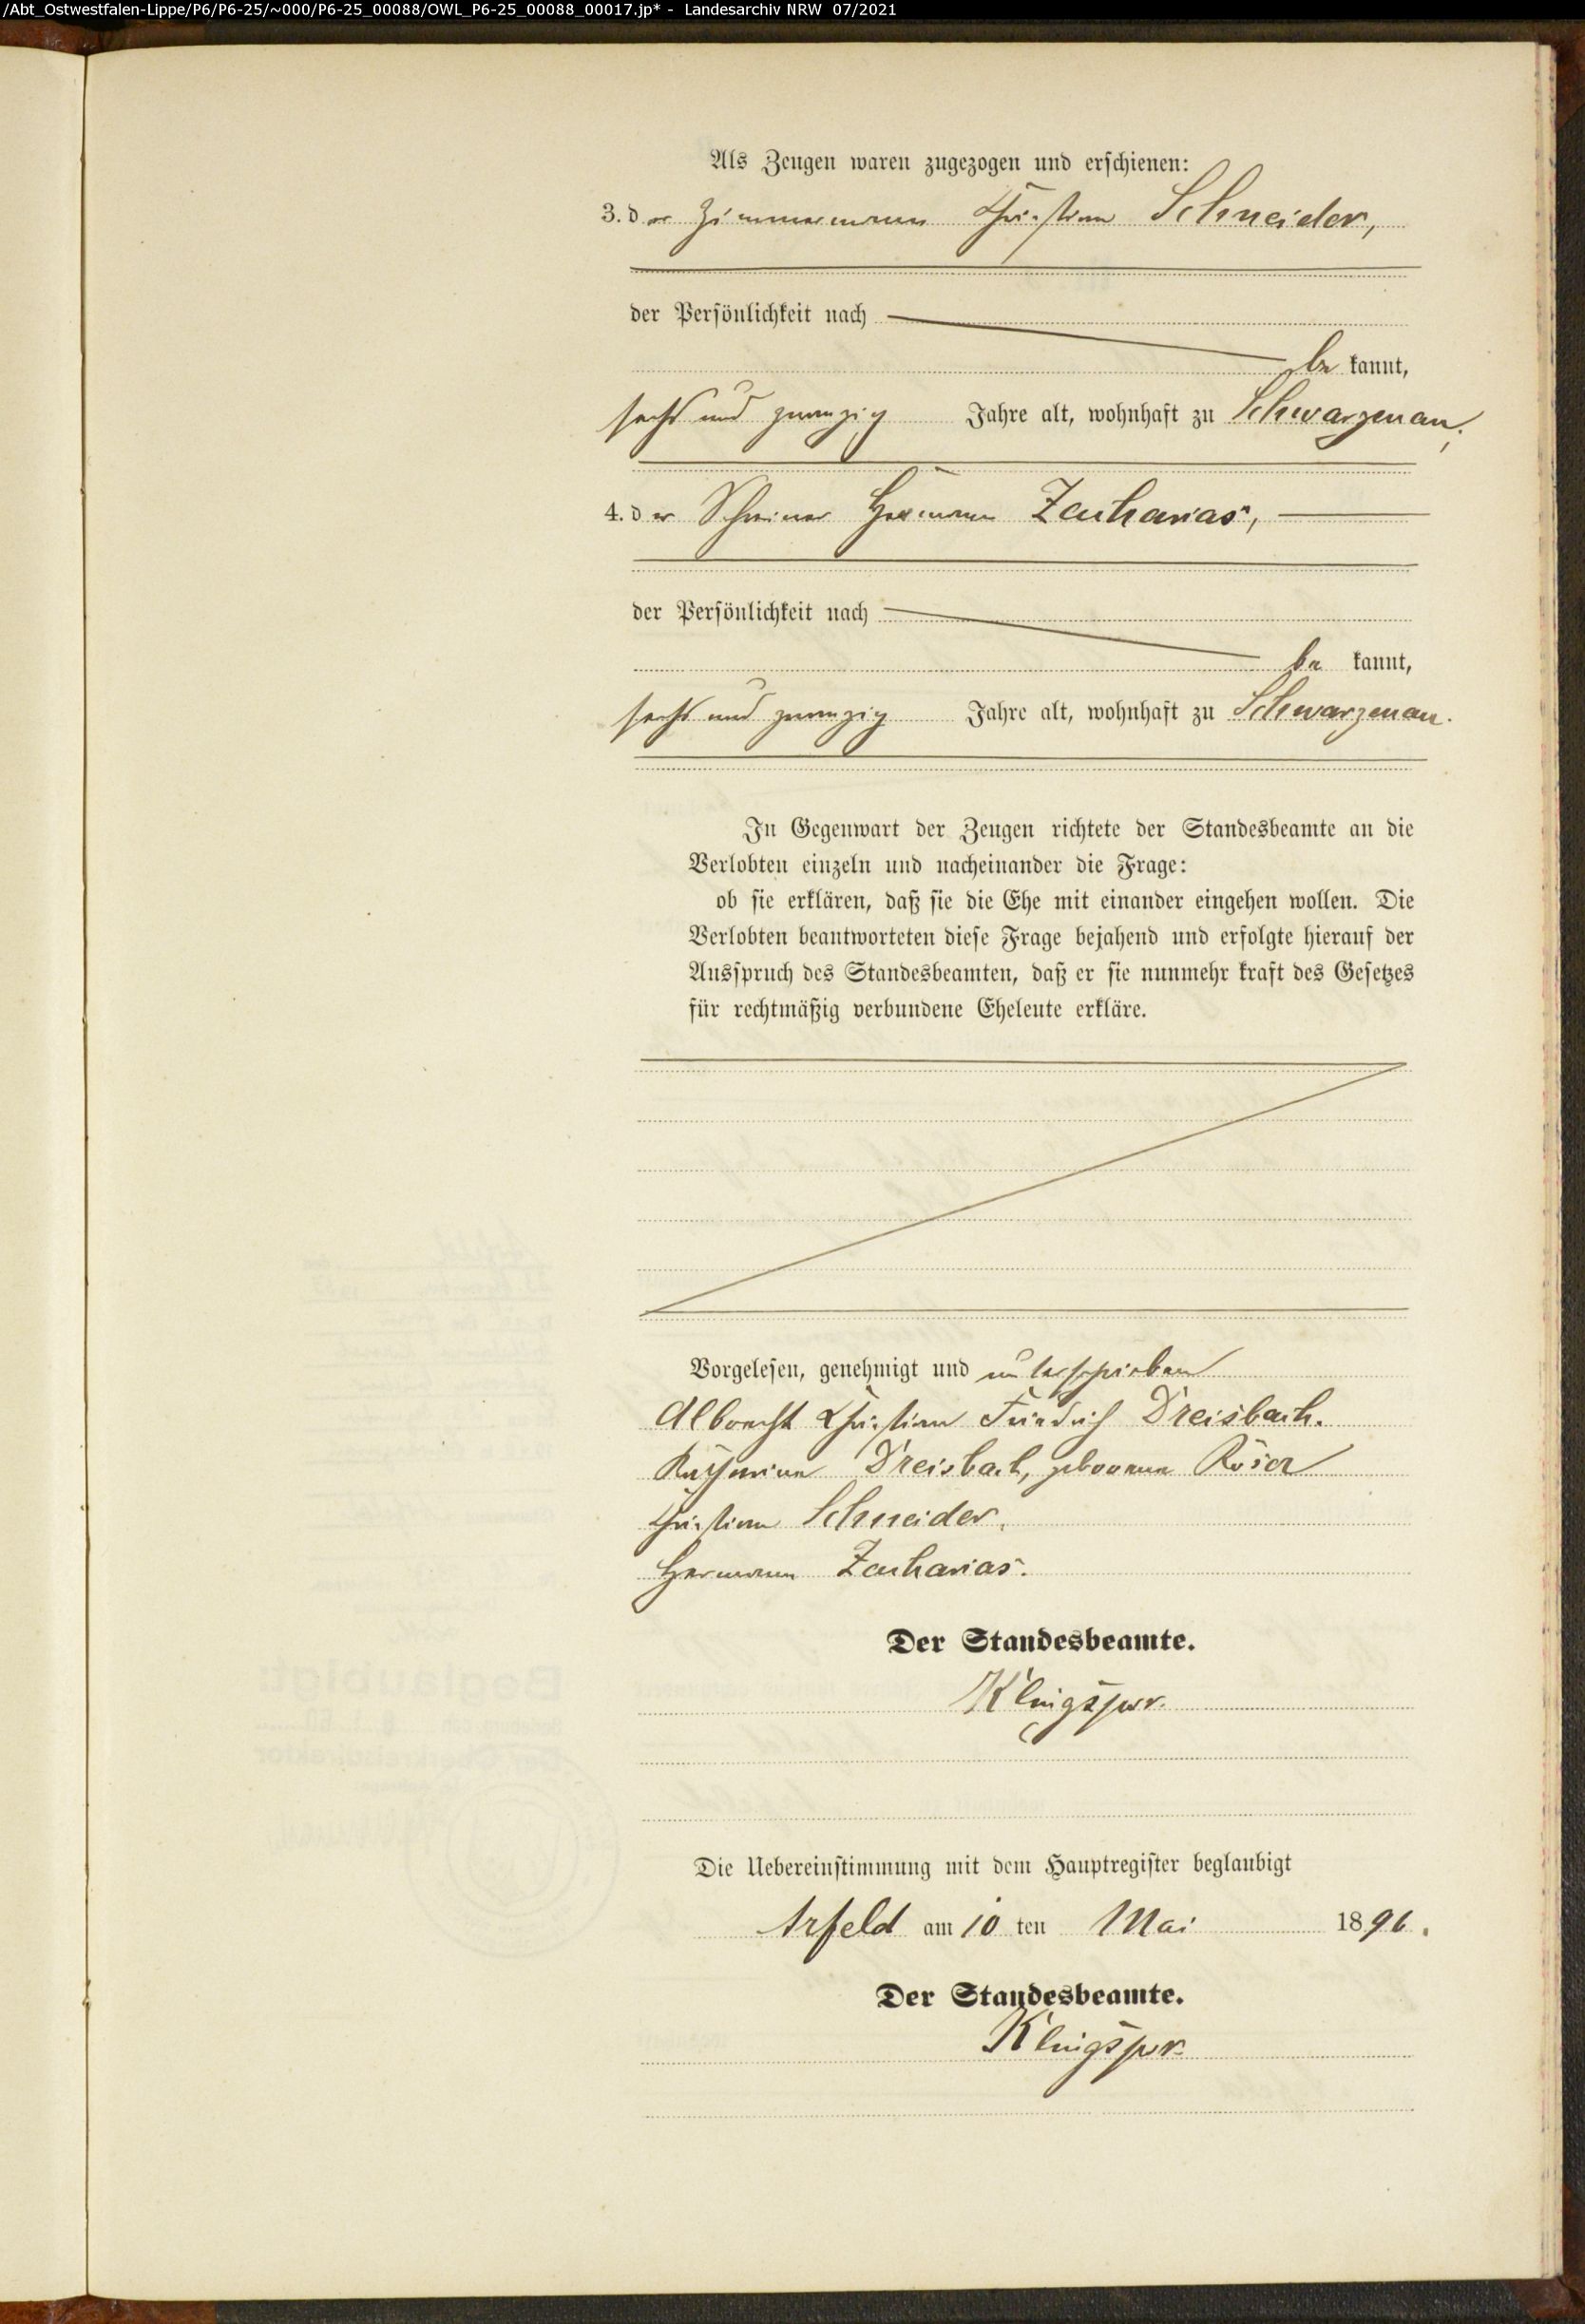 /Abt_Ostwestfalen-Lippe/P6/P6-25/~000/P6-25_00088/OWL_P6-25_00088_00017.jp* - Landesarchiv NRW 07/2021
Als Zeugen waren zugezogen und erschienen:
3. der Zimmermann Christian Schneider,
der Persönlichkeit nach
be kannt,
sechs und zwanzig Jahre alt, wohnhaft zu Schwarzenau;
4. der Schreiner Hermann Zacharias,
der Persönlichkeit nach
be kannt,
sechs und zwanzig Jahre alt, wohnhaft zu Schwarzenau.
In Gegenwart der Zeugen richtete der Standesbeamte an die
Verlobten einzeln und nacheinander die Frage:
ob sie erklären, daß sie die Ehe mit einander eingehen wollen. Die
Verlobten beantworteten diese Frage bejahend und erfolgte hierauf der
Ausspruch des Standesbeamten, daß er sie nunmehr kraft des Gesetzes
für rechtmäßig verbundene Eheleute erkläre.
Vorgelesen, genehmigt und unterschrieben
Albrecht Christian Friedrich Dreisbach.
Katharine Dreisbach, geborene Röser
Christian Schneider.
Hermann Zacharias.
Der Standesbeamte.
Klingspor.
Die Uebereinstimmung mit dem Hauptregister beglaubigt
Arfeld am 10 ten Mai 1896.
Der Standesbeamte.
Klingspor